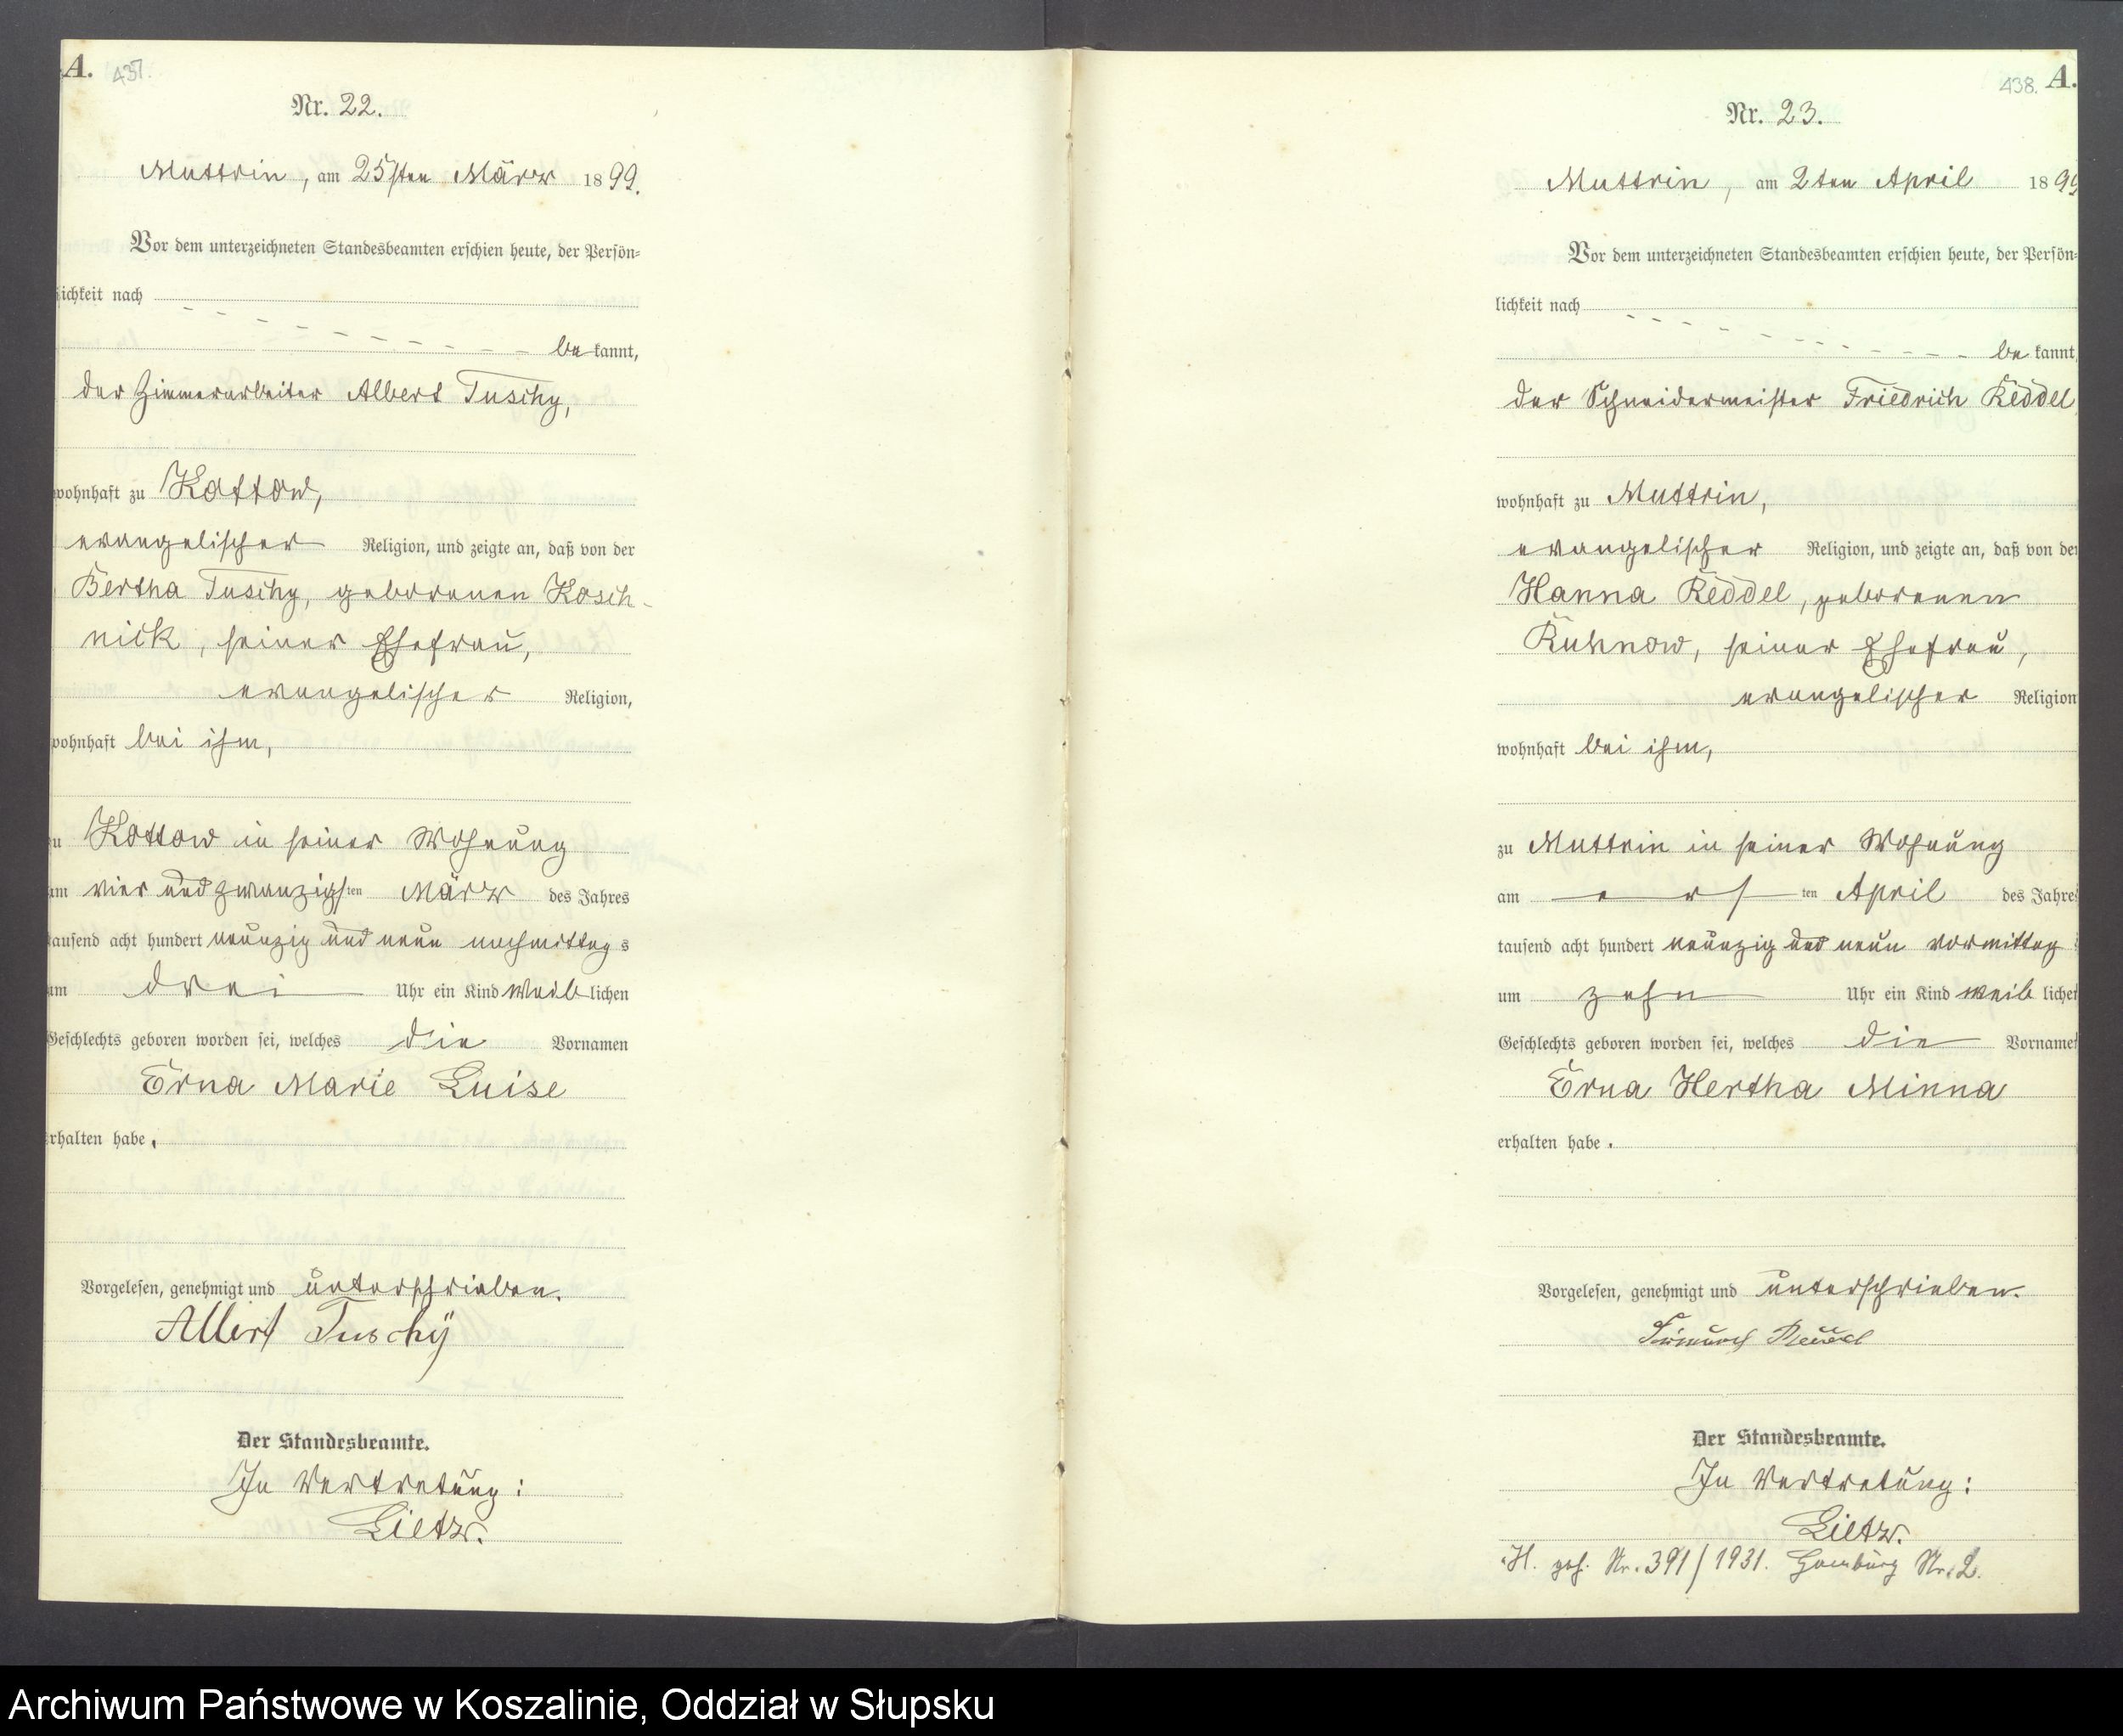 A. 437.
Nr. 22.
Muttrin, am 25sten März 1899.
Vor dem unterzeichneten Standesbeamten erschien heute, der Persön-
lichkeit nach
be kannt,
der Zimmerarbeiter Albert Tuschy,
wohnhaft zu Kottow,
evangelischer Religion, und zeigte an, daß von der
Bertha Tuschy, geborenen Kosch-
nick, seiner Ehefrau,
evangelischer Religion,
wohnhaft bei ihm,
zu Kottow in seiner Wohnung
am vier und zwanzigsten März des Jahres
tausend acht hundert neunzig und neun nachmittags
um drei Uhr ein Kind weiblichen
Geschlechts geboren worden sei, welches die Vornamen
Erna Marie Luise
erhalten habe.
Vorgelesen, genehmigt und unterschrieben.
Albert Tuschÿ
Der Standesbeamte.
In Vertretung:
Lietz.
438. A.
Nr. 23.
Muttrin, am 2ten April 1899
Vor dem unterzeichneten Standesbeamten erschien heute, der Persön-
lichkeit nach
be kannt,
der Schneidermeister Friedrich Reddel
wohnhaft zu Muttrin,
evangelischer Religion, und zeigte an, daß von der
Hanna Reddel, geborenen
Kuhnow, seiner Ehefrau,
evangelischer Religion
wohnhaft bei ihm,
zu Muttrin in seiner Wohnung
am ersten April des Jahres
tausend acht hundert neunzig und neun vormittag
um zehn Uhr ein Kind weiblichen
Geschlechts geboren worden sei, welches die Vornamen
Erna Hertha Minna
erhalten habe.
Vorgelesen, genehmigt und unterschrieben.
Der Standesbeamte.
In Vertretung:
Lietz.
H. geh. Nr. 391/1931. Hamburg Nr. 2.
Archiwum Państwowe w Koszalinie, Oddział w Słupsku